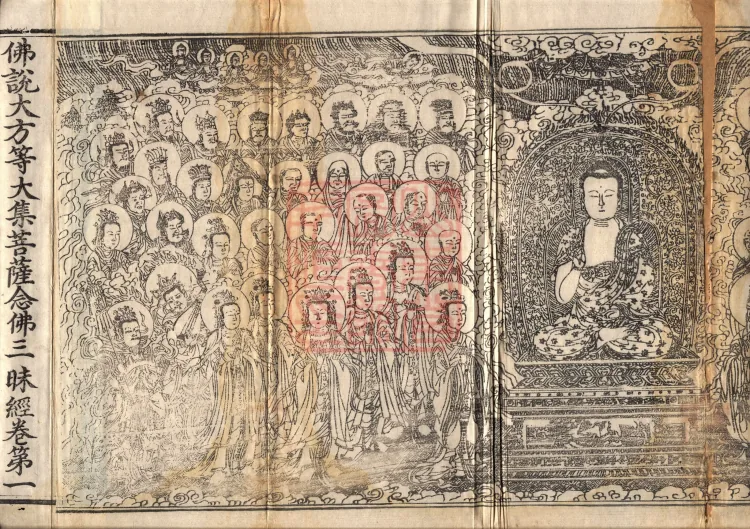 佛說大方等大集菩薩念佛三昧經卷第一